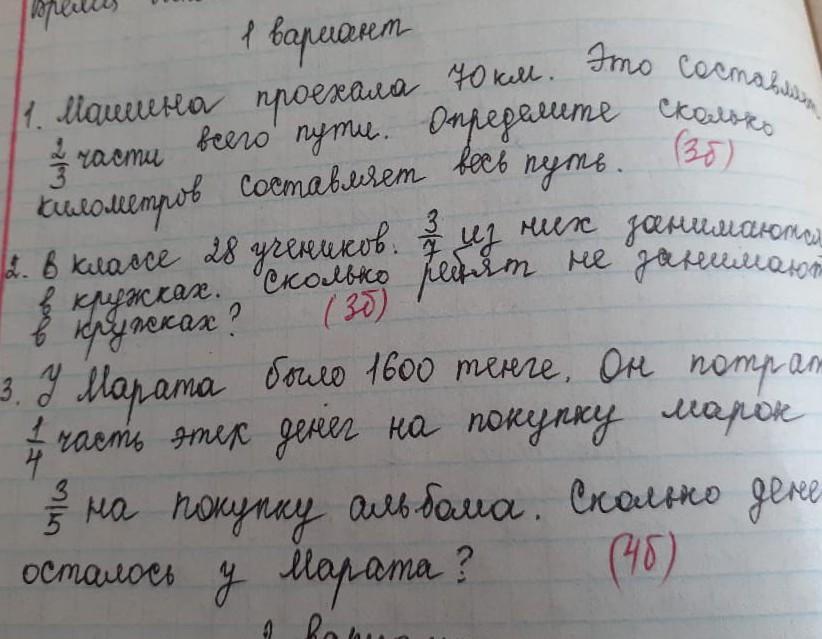 Время
1 вариант
1. Машина проехала 70 км. Это составляет
2/3 части всего пути. Определите сколько
километров составляет весь путь. (3б)
2. В классе 28 учеников. 3/7 из них занимаются
в кружках. Сколько ребят не занимают
в кружках? (3б)
3. У Марата было 1600 тенге. Он потрат
1/4 часть этих денег на покупку марок
3/5 на покупку альбома. Сколько дене
осталось у Марата? (4б)